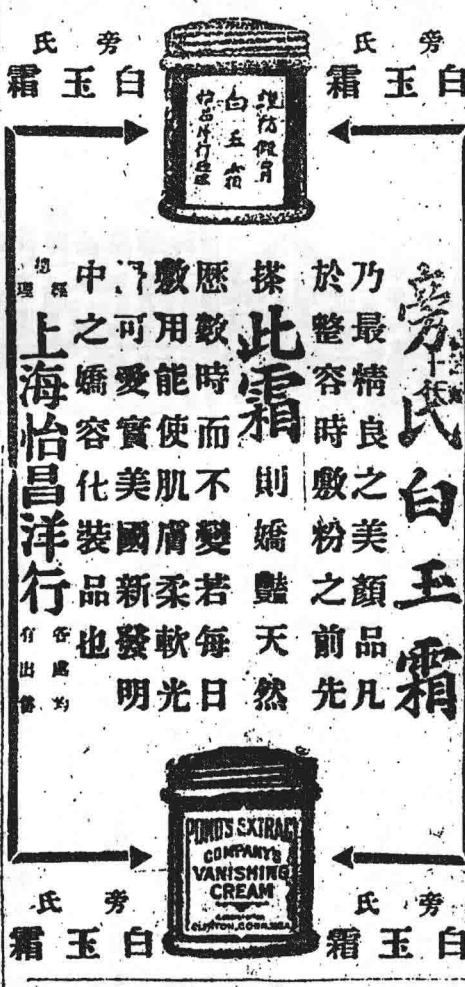 旁氏
白玉霜
旁氏
白玉霜
謹防假冒
白玉霜
旁氏白玉霜
乃最精良之美顏品凡
於整容時敷粉之前先
搽此霜則嬌豔天然
歷數時而不變若每日
敷用能使肌膚柔軟光
可愛實美國新發明
中之嬌容化裝品也
總經理
上海怡昌洋行
各處均
有出售
POND'S EXTRACT
COMPANY'S
VANISHING
CREAM
CLINTON, CONN. U.S.A.
旁氏
白玉霜
旁氏
白玉霜